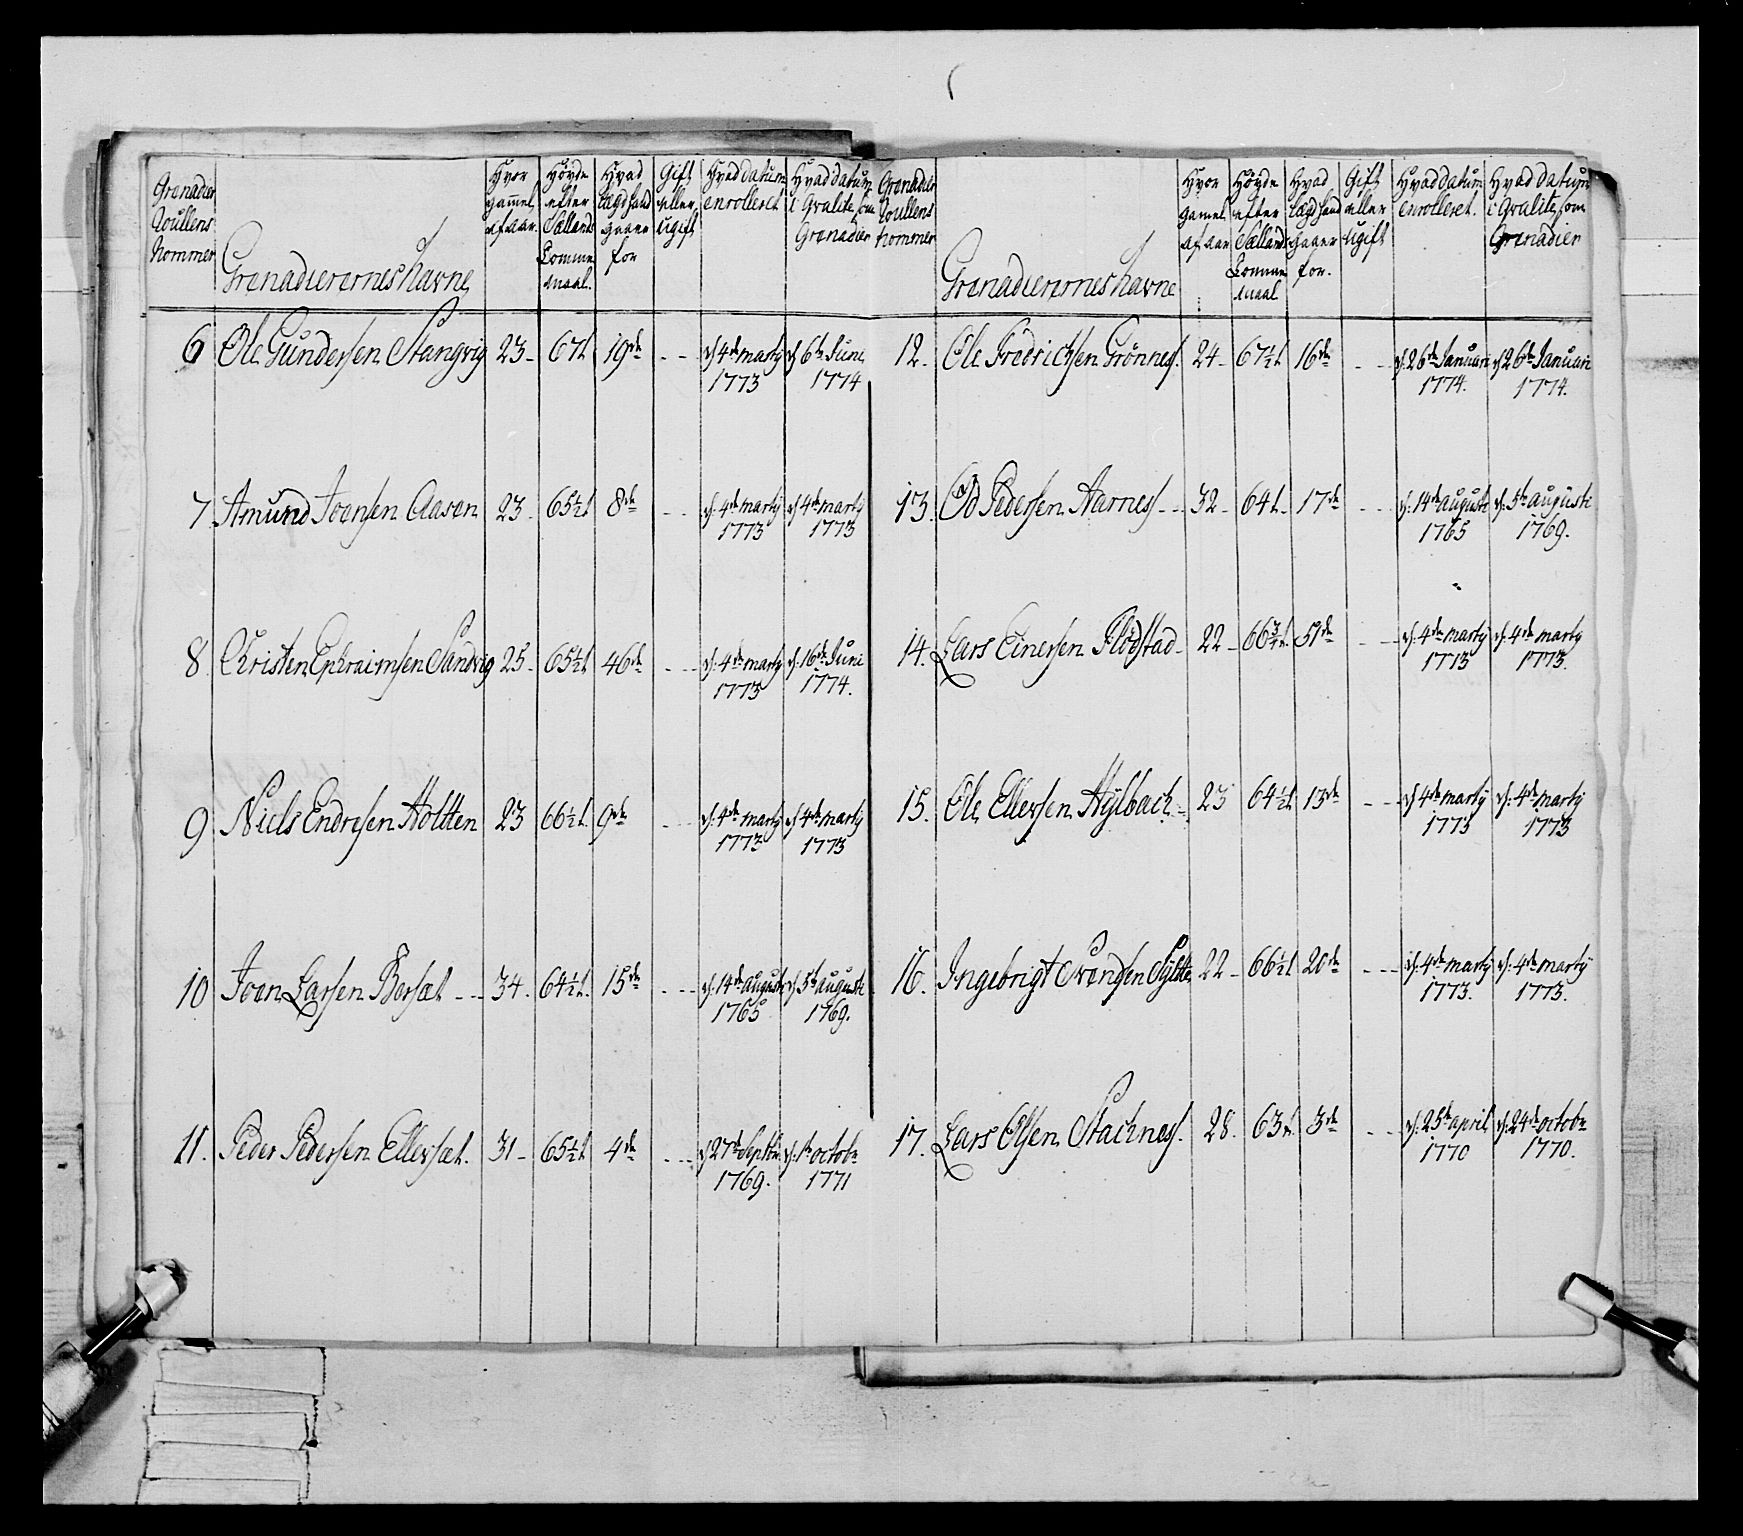 Grenadier
Roullens
Nommer
Grenadierernes Navne
Hvor
gammel
af aar.
Høyde
efter
Sællands
Comme
maal.
Hvad
Lægd hand
gaaer
for
Gift
eller
Ugift
Hvad datum
enrolleret
Hvad datum
i Qvalite som
Grenadier
6 Ole Gundersen Stangvig 23 67t 19de - - d 4de marty d 6te Juni
1773 1774
7 Amund Joensen Aasen 23 65½t 8de - - d. 4de marty d 4de marty
1773 1773
8 Christen Ephraimsen Sandvig 25 65½t 46de - - d. 4de marty d. 16de Juni
1773 1774.
9 Niels Endresen Holtten 23 66½t 9de - - d. 4de marty d 4de marty
1773 1773
10 Joen Larsen Bersæt - - 34. 64½t. 15de - - d. 14de august d. 5te augusti
1765 1769.
11. Peder Pedersen Ellevsæt. 31 65½t 4de - - d 27de Septbr. d. 1te octobr
1769. 1771
Grenadier
Roullens
Nommer
Grenadierernes Navne
Hvor
Gamel
af aar
Høyde
efter
Sællands
Comme
maal
Hvad
Lægd hand
gaaer
for.
Gift
eller
Ugift
Hvad datum
enrolleret.
Hvad datum
i Qvalite som
Grenadier
12. Ole Fredrichsen Grønnes. 24 67½t 16de - - d. 26de Januari d 26de Januari
1774. 1774.
13. Od Pedersen Aarnes - - 32 64t. 17de - - d. 14de augusti d. 5te augusti
1765 1769.
14. Lars Einersen Flodstad 22 66¾t. 51de - - d. 4de marty d. 4de marty
1773 1773.
15. Ole Ellevsen Hylbach 23 64½t 13de - - d 4de marty d. 4de marty
1773 1773
16. Ingebrigt Svendsen Sylte 22 66½t 20de - - d. 4de marty d. 4de marty
1773. 1773.
17. Lars Olsen Stachnes. 28. 63t. 3de - - d. 25de april d. 24de octobr
1770 1770.